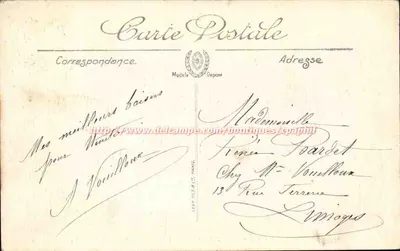 Carte Postale
Correspondance
Adresse
Modèle Déposé
Mes meilleurs baisers
pour
A Vouilloux
http://www.delcampe.com/boutiques/epapill
Mademoiselle
Renée Bardet
Chez Mr Vouilloux
13 Rue
Limoges